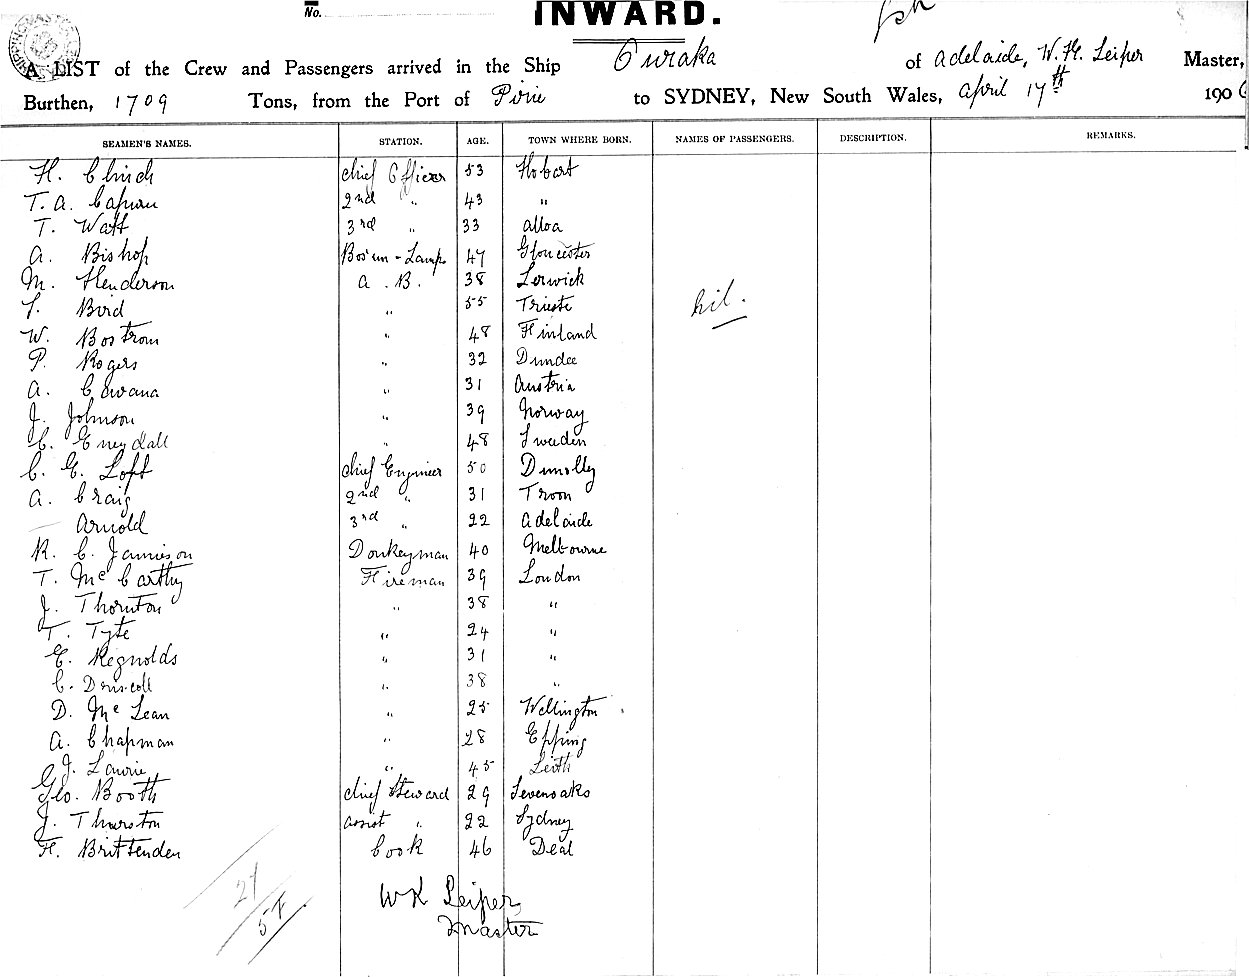 No.
INWARD.
A LIST of the Crew and Passengers arrived in the Ship Ouraka of Adelaide, W. H. Leiper Master,
Burthen, 1709 Tons, from the Port of Pirie to SYDNEY, New South Wales, April 17th 190
SEAMEN'S NAMES. STATION. AGE. TOWN WHERE BORN. NAMES OF PASSENGERS. DESCRIPTION. REMARKS.
H. Clinch chief Officer 53 Hobart
T. A. 2nd " 43 "
T. Watt 3rd " 33 Alloa
A. Bishop Bos'un - Lamps 47 Gloucester
M. Henderson A. B. 38 Lerwick
Bird " 55 Trieste nil.
W. Bostrom " 48 Finland
P. Rogers " 32 Dundee
A. " 31 Austria
J. Johnson " 39 Norway
C. " 48 Sweden
C. E. Loft chief Engineer 50 Dunolly
A. Craig 2nd " 31 Troon
— Arnold 3rd " 22 Adelaide
R. C. Jamieson Donkeyman 40 Melbourne
T. McCarthy Fireman 39 London
J. Thornton " 38 "
T. Tyte " 24 "
E. Reynolds " 31 "
C. Driscoll " 38 "
D. McLean " 25 Wellington
A. Chapman " 28 Epping
J. Lawrie " 45 Leith
Geo. Booth chief Steward 29 Sevenoaks
J. Thurston assist " 22 Sydney
H. Brittenden Cook 46 Deal
27
57
WH Leiper
Master